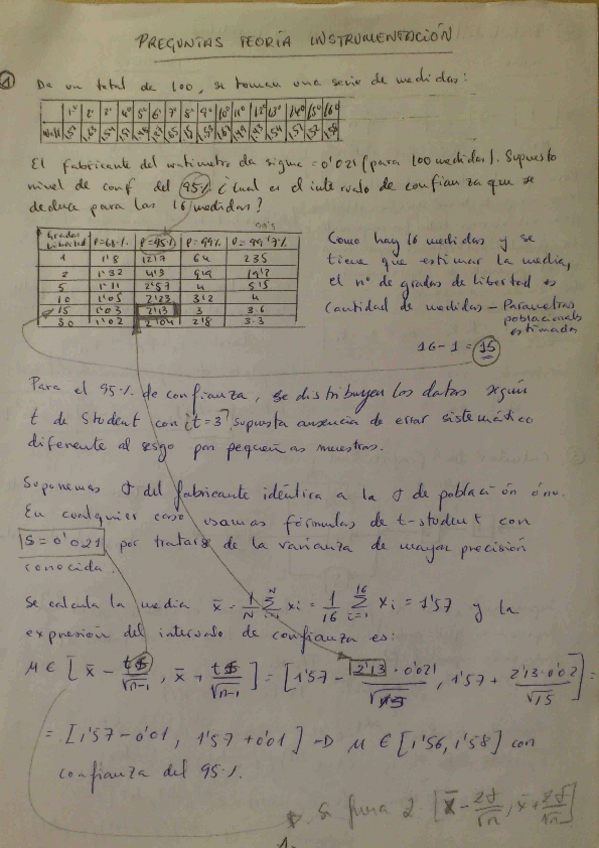 PREGUNTAS TEORÍA INSTRUMENTACIÓN
1
De un total de 100, se toman una serie de medidas:
1ª 2ª 3ª 4ª 5ª 6ª 7ª 8ª 9ª 10ª 11ª 12ª 13ª 14ª 15ª 16ª
El fabricante del watimetro da sigma = 0'021 (para 100 medidas). Supuesto
nivel de conf del 95% ¿cual es el intervalo de confianza que se
deduce para las 16 medidas?
Grados Libertad P=68% P=95% P=99% P=99'7%
1 1'8 12'7 64 235
2 1'32 4'3 9'9 19'2
5 1'11 2'57 4 5'5
10 1'05 2'23 3'2 4
15 1'03 2'13 3 3.6
30 1'02 2'04 2'8 3.3
Como hay 16 medidas y se
tiene que estimar la media,
el nº de grados de libertad es
Cantidad de medidas - Parametros
poblacionales
estimados
16-1 = 15
Para el 95% de confianza, se distribuyen los datos según
t de Student con ¿t=3?, supuesta ausencia de error sistemático
diferente al sesgo por pequeñas muestras.
Suponemos σ del fabricante idéntica a la σ de población ó no.
En cualquier caso usamos fórmulas de t-student con
S=0'021 por tratarse de la varianza de mayor precisión
conocida.
Se calcula la media x̄ = 1/N Σ xi = 1/16 Σ xi = 1'57 y la
expresión del intervalo de confianza es:
μ ∈ [x̄ - tS/√n-1, x̄ + tS/√n-1] = [1'57 - 2'13·0'021/√15, 1'57 + 2'13·0'02/√15] =
= [1'57-0'01, 1'57+0'01] → μ ∈ [1'56, 1'58] con
confianza del 95%.
Si fuera 2 [x̄ - 2σ/√n, x̄ + 2σ/√n]